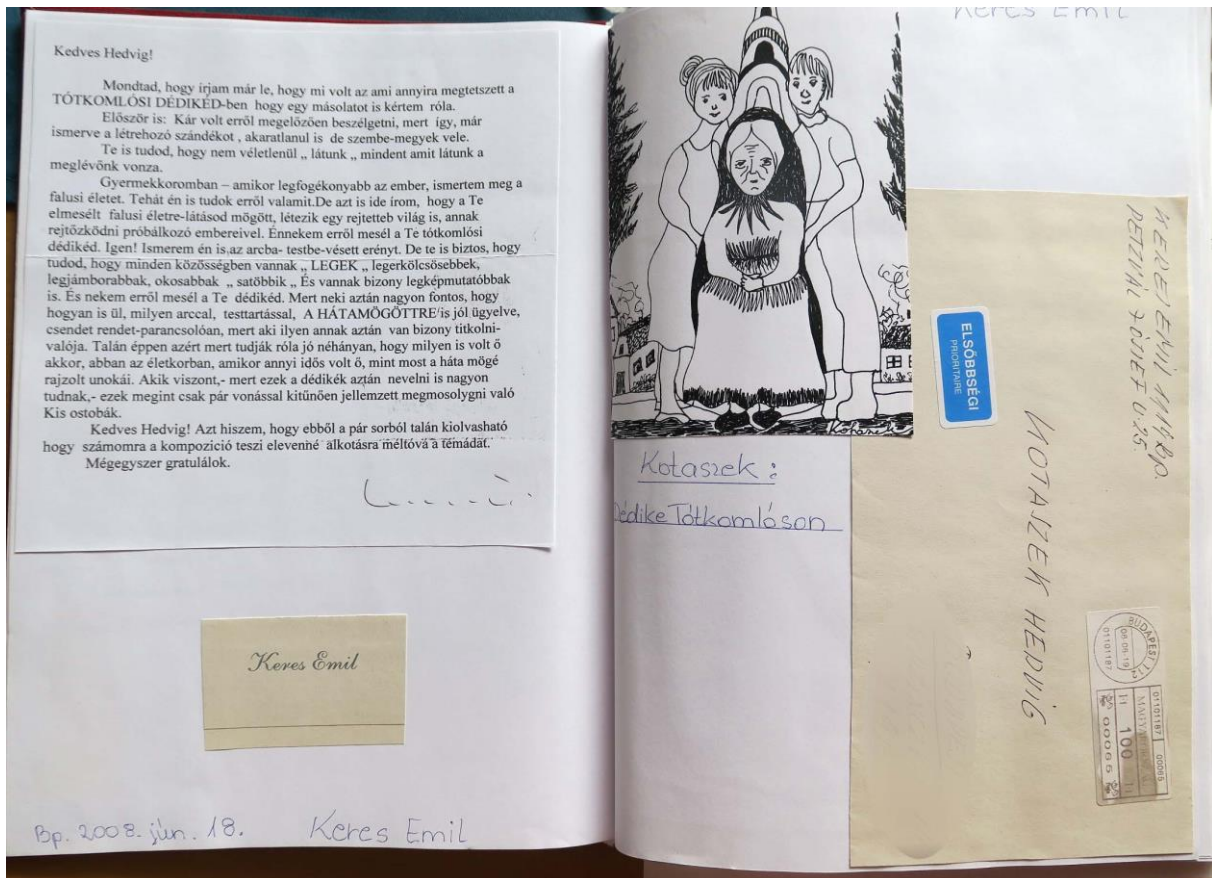 Kedves Hedvig!
Mondtad, hogy írjam már le, hogy mi volt az ami annyira megtetszett a
TÓTKOMLÓSI DÉDIKÉD-ben hogy egy másolatot is kértem róla.
Először is: Kár volt erről megelőzően beszélgetni, mert így, már
ismerve a létrehozó szándékot , akaratlanul is de szembe-megyek vele.
Te is tudod, hogy nem véletlenül „ látunk „ mindent amit látunk a
meglévőnk vonza.
Gyermekkoromban – amikor legfogékonyabb az ember, ismertem meg a
falusi életet. Tehát én is tudok erről valamit.De azt is ide írom, hogy a Te
elmesélt falusi életre-látásod mögött, létezik egy rejtetteb világ is, annak
rejtőzködni próbálkozó embereivel. Énnekem erről mesél a Te tótkomlósi
dédikéd. Igen! Ismerem én is,az arcba- testbe-vésett erényt. De te is biztos, hogy
tudod, hogy minden közösségben vannak „ LEGEK „ legerkölcsösebbek,
legjámborabbak, okosabbak „ satöbbik „ És vannak bizony legképmutatóbbak
is. És nekem erről mesél a Te dédikéd. Mert neki aztán nagyon fontos, hogy
hogyan is ül, milyen arccal, testtartással, A HÁTAMÖGÖTTRE is jól ügyelve,
csendet rendet-parancsolóan, mert aki ilyen annak aztán van bizony titkolni-
valója. Talán éppen azért mert tudják róla jó néhányan, hogy milyen is volt ő
akkor, abban az életkorban, amikor annyi idős volt ő, mint most a háta mögé
rajzolt unokái. Akik viszont,- mert ezek a dédikék aztán nevelni is nagyon
tudnak,- ezek megint csak pár vonással kitűnően jellemzett megmosolygni való
Kis ostobák.
Kedves Hedvig! Azt hiszem, hogy ebből a pár sorból talán kiolvasható
hogy számomra a kompozició teszi elevenné alkotásra méltóvá a témádat.
Mégegyszer gratulálok.
Keres Emil
Bp. 2008. jún. 18. Keres Emil
Keres Emil
Kotaszek
Kotaszek :
Dédike Tótkomlóson
KERES EMIL 1114. Bp.
ELSŐBBSÉGI
PRIORITAIRE
KOTASZEK HEDVIG
BUDAPEST 112
08-06-19
01101187
01101187 00065
100
00065